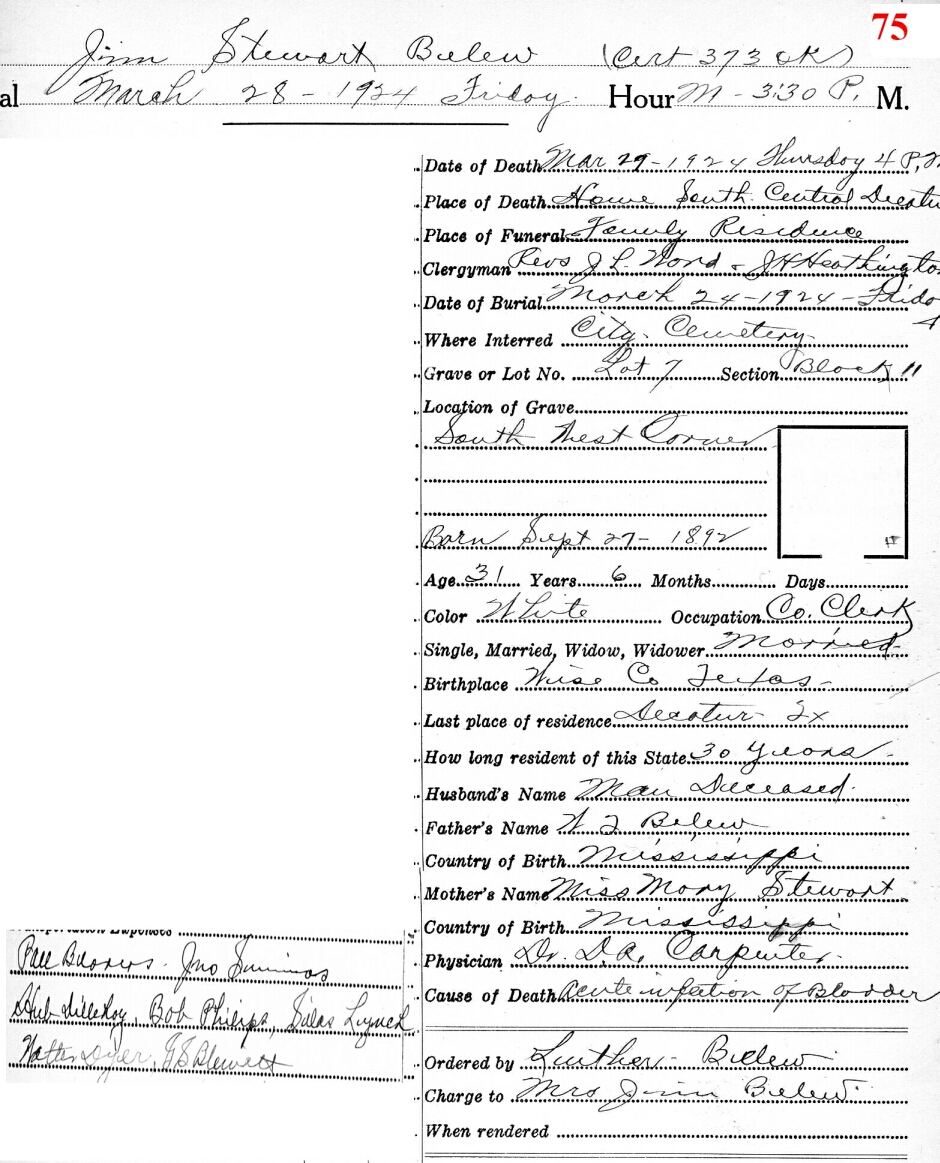 75
Jim Stewart Belew (Cert 373 OK)
al March 28 - 1924 Friday. Hour M - 3:30 P. M.
Date of Death Mar 27 - 1924 Thursday 4 P.M
Place of Death Home South Central Decatu
Place of Funeral Family Residence
Clergyman Revs J. L. Word & J H Heathingto
Date of Burial March 24 - 1924 - Frida
4
Where Interred City Cemetery
Grave or Lot No. Lot 7 Section Block 11
Location of Grave
South West Corner
Born Sept 27 - 1892
Age 31 Years 6 Months Days
Color White Occupation Co. Clerk
Single, Married, Widow, Widower Married
Birthplace Wise Co Texas
Last place of residence Decatur - Tx
How long resident of this State 30 years
Husband's Name Man Deceased
Father's Name W T Belew
Country of Birth Mississippi
Mother's Name Miss Mary Stewart
Country of Birth Mississippi
Physician Dr. D. A. Carpenter
Cause of Death Acute infection of Bladder
Ordered by Luther Belew
Charge to Mrs Jim Belew
When rendered
Expenses
Pall Bearers - Jno Simmons
Bob Philips, Silas Lynch
Walter Dyer, G S Blewett